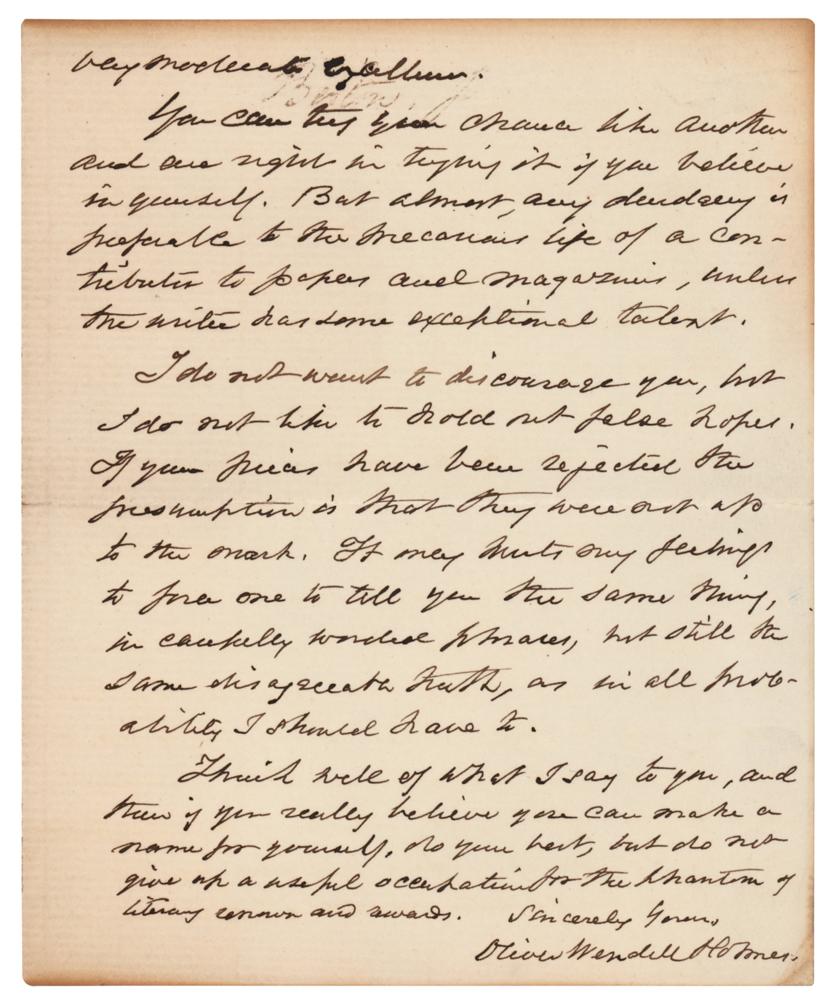 very moderate excellence.
Boston,
You can try your chance like another
and are right in trying it if you believe
in yourself. But almost any drudgery is
preferable to the precarious life of a con-
tributor to papers and magazines, unless
the writer has some exceptional talent.
I do not want to discourage you, but
I do not like to hold out false hopes.
If your pieces have been rejected the
presumption is that they were not up
to the mark. It only hurts my feelings
to force one to tell you the same thing,
in carefully worded phrases, but still the
same disagreeable truth, as in all prob-
ability I should have to.
Think well of what I say to you, and
then if you really believe you can make a
name for yourself, do your best, but do not
give up a useful occupation for the phantom of
literary renown and awards. Sincerely Yours,
Oliver Wendell Holmes.